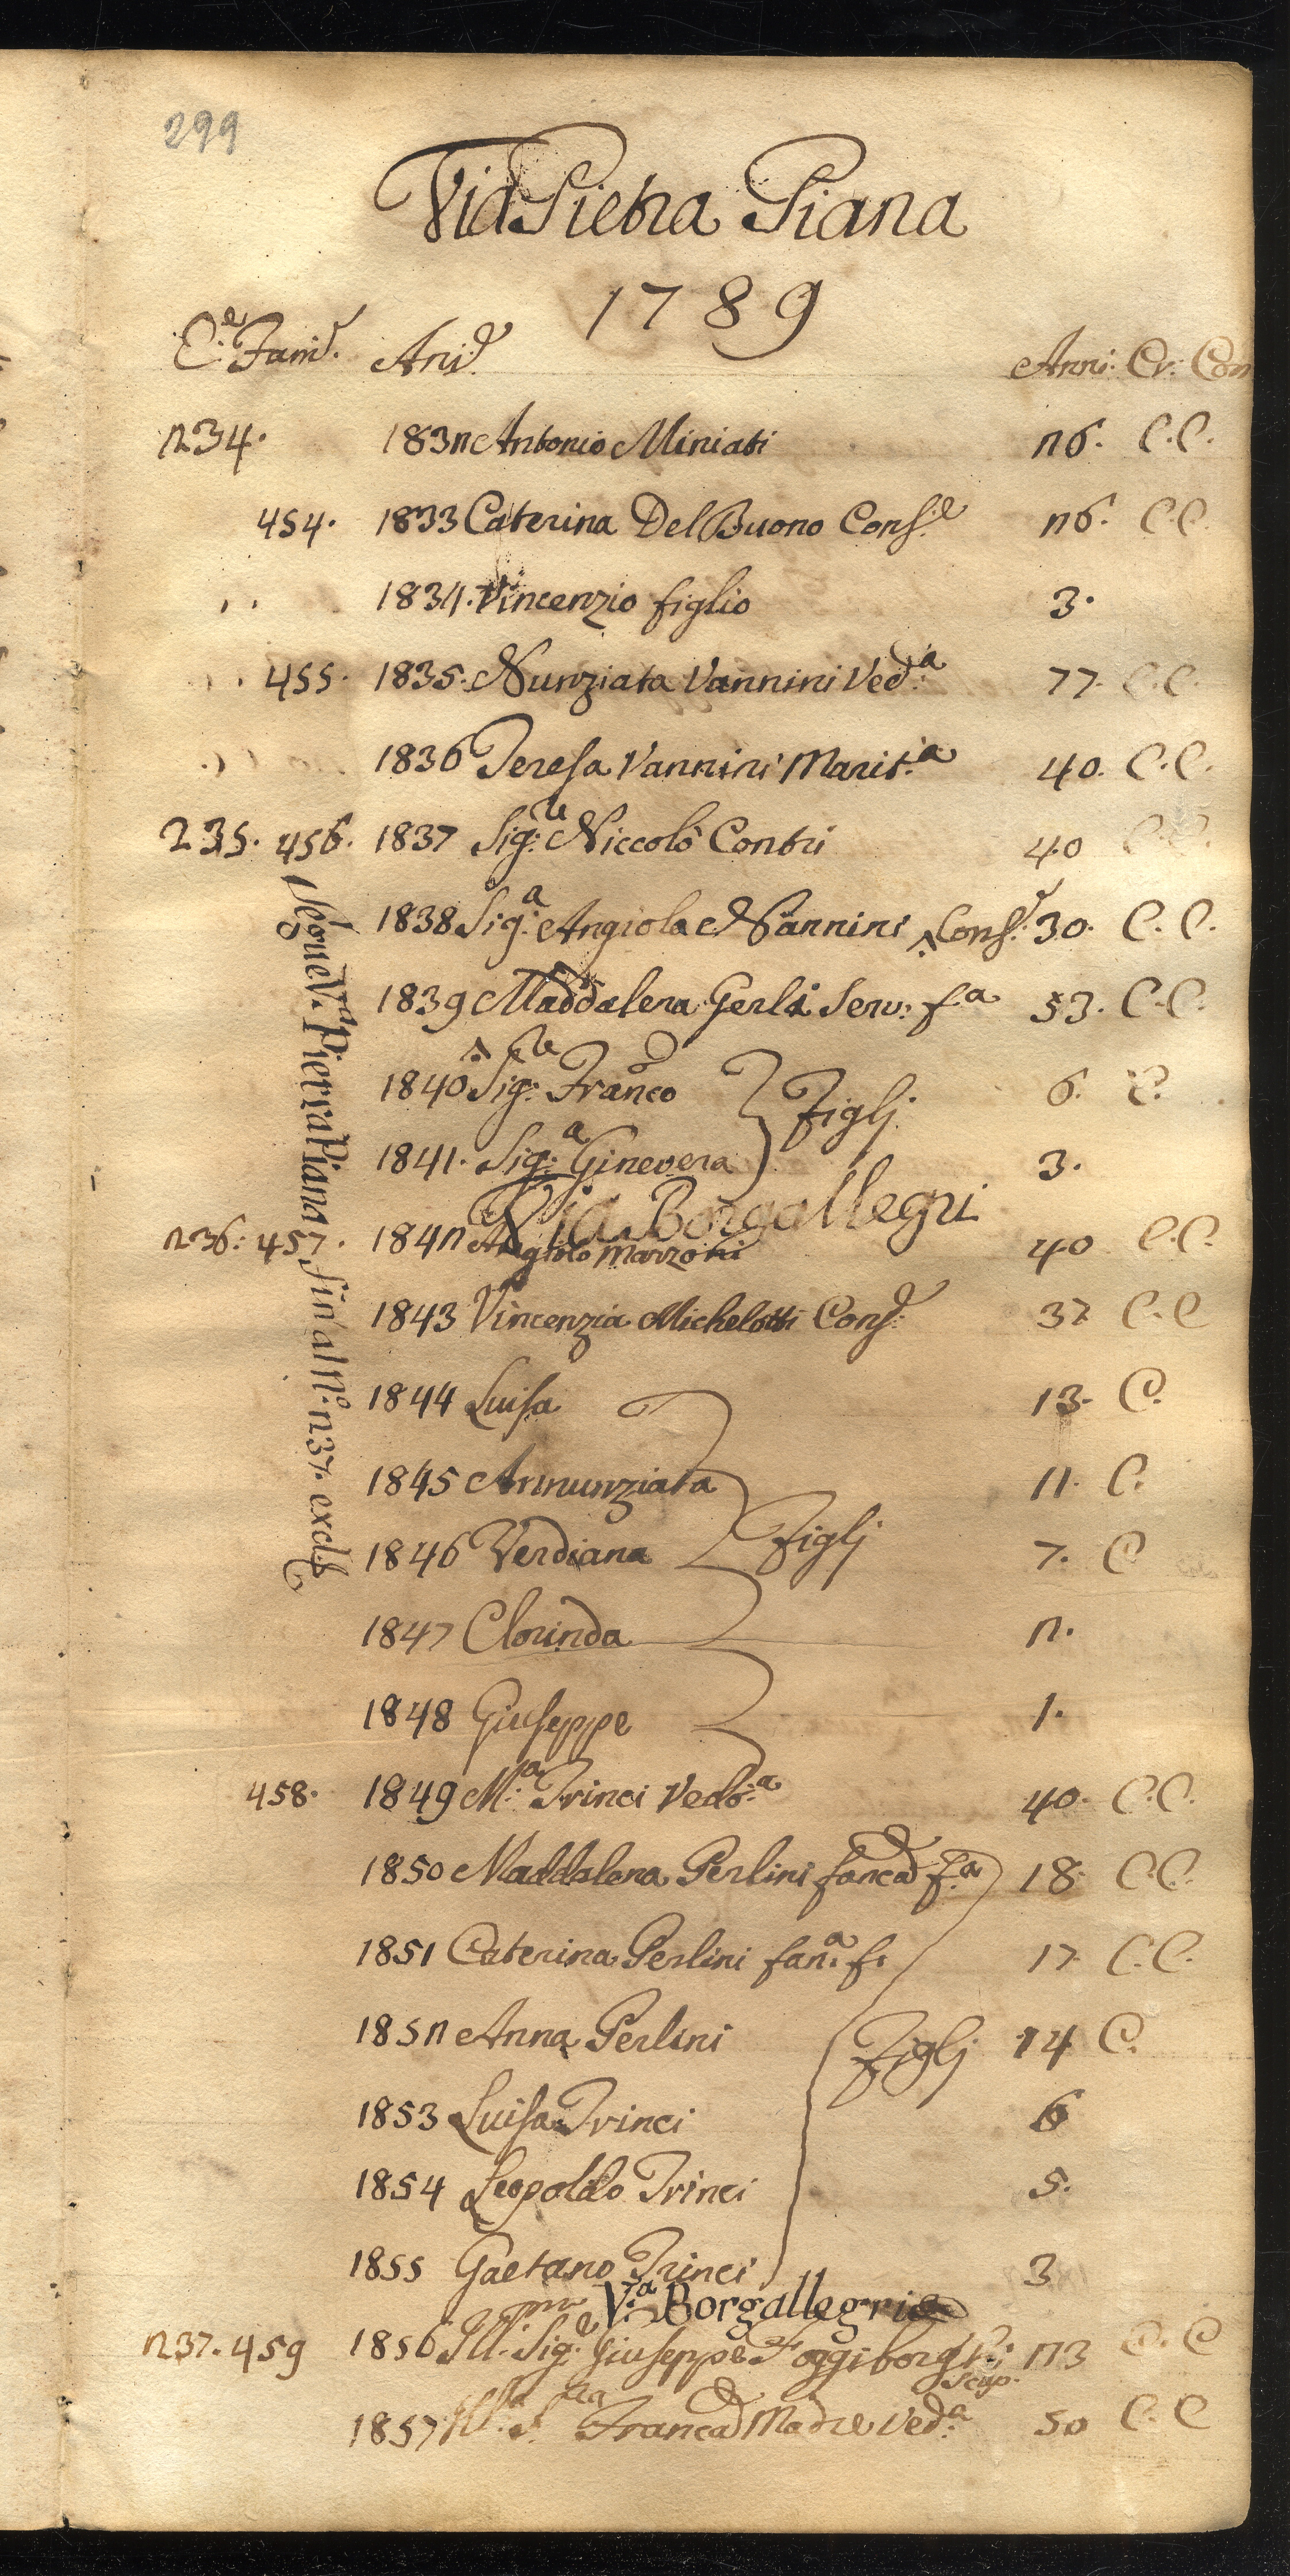 299
Via Pietra Piana
1789
C.e Fam.e Ani.e Anni. Cr. Com
234. 1832 Antonio Miniati 26. C.C.
454. 1833 Caterina Del Buono Cons.e 26. C.C.
1834. Vincenzio figlio 3.
455. 1835. Nunziata Vannini Ved.a 77. C.C.
1836 Teresa Vannini Marit.a 40. C.C.
235. 456. 1837 Sig.re Niccolò Contri 40 C.C.
1838 Sig.a Angiola Nannini Cons.e 30. C.C.
1839 Maddalena Gerli Serv: f.a 53. C.C.
1840 Sig.re Franco } Figlj 6. C.
1841. Sig.a Ginevera 3.
Via Borgallegri
236. 457. 1842 Angiolo Marzoni 40 C.C.
1843 Vincenzia Michelotti Cons.e 37 C.C
1844 Luisa 13. C.
1845 Annunziata 11. C.
1846 Verdiana } Figlj 7. C
1847 Clorinda 2.
1848 Giuseppe 1.
458. 1849 M.a Trinci Vedo.a 40. C.C.
1850 Maddalena Perlini fanca f.a 18. C.C.
1851 Caterina Perlini fan.a f. 17. C.C.
1852 Anna Perlini Figlj 14 C.
1853 Luisa Trinci 6
1854 Leopoldo Trinci 5.
1855 Gaetano Trinci 3
V.a Borgallegri
237. 459 1856 Ill.mo Sig.e Giuseppe 23 C.C
scap.
1857 Ill.a S. Franca Madre Ved.a 50 C.C
Segue V.a Pietra Piana fin al N.o 237. excl.